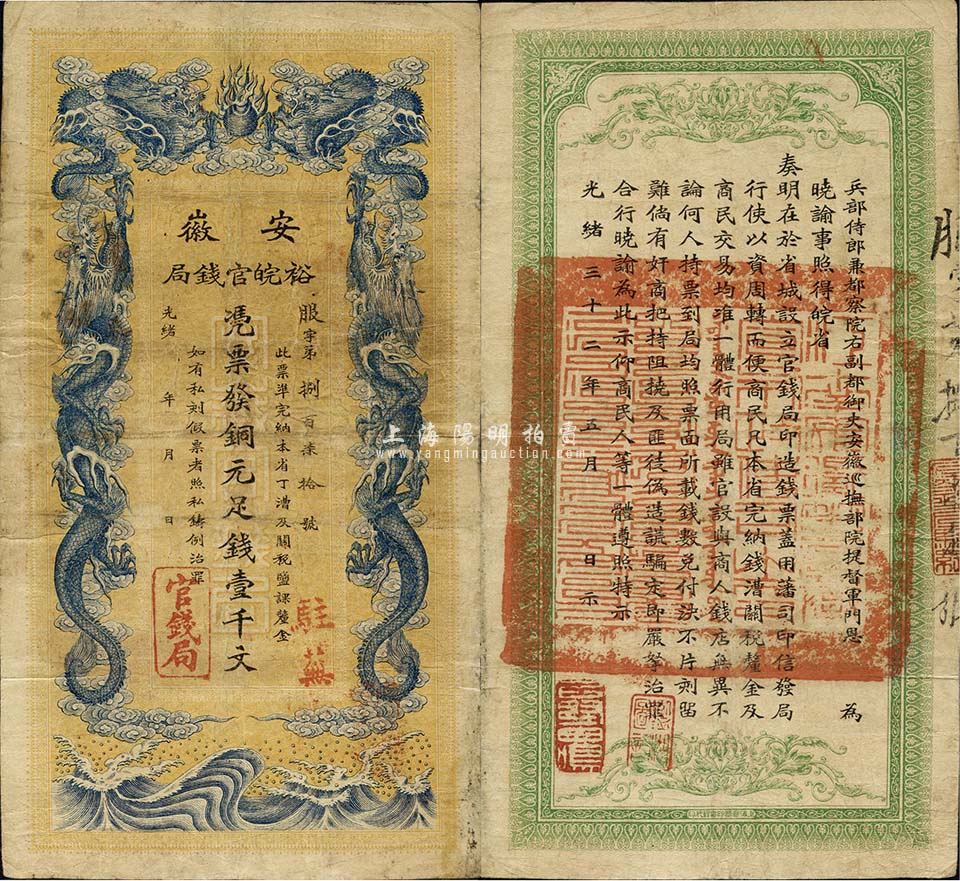 安徽
裕皖官錢局
服字第捌百柒拾號
此票準完納本省丁漕及關稅鹽課釐金
憑票發銅元足錢壹千文
如有私刻假票者照私鑄例治罪
光緒 年 月 日
駐蕪
官錢局
兵部侍郎兼都察院右副都御史安徽巡撫部院提督軍門恩 為
曉諭事照得皖省
奏明在於省城設立官錢局印造錢票蓋用藩司印信發局
行使以資周轉而便商民凡本省完納錢漕關稅釐金及
商民交易均准一體行用局雖官設與商人錢店無異不
論何人持票到局均照票面所載錢數兌付決不片刻留
難倘有奸商把持阻撓及匪徒偽造誆騙定即嚴拏治罪
合行曉諭為此示仰商民人等一體遵照特示
光緒三十二年五月 日示
上海陽明拍賣
www.yangmingauction.com